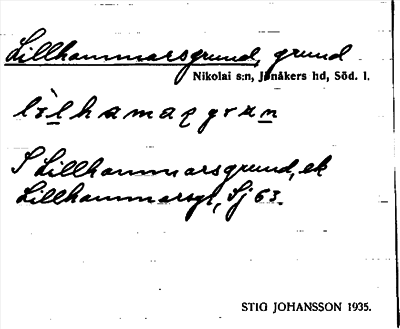 Lillhammarsgrund, grund
Nikolai s:n, Jönåkers hd, Söd. l.
S Lillhammarsgrund, ek
Lillhammarsgr, Sj 63.
STIG JOHANSSON 1935.